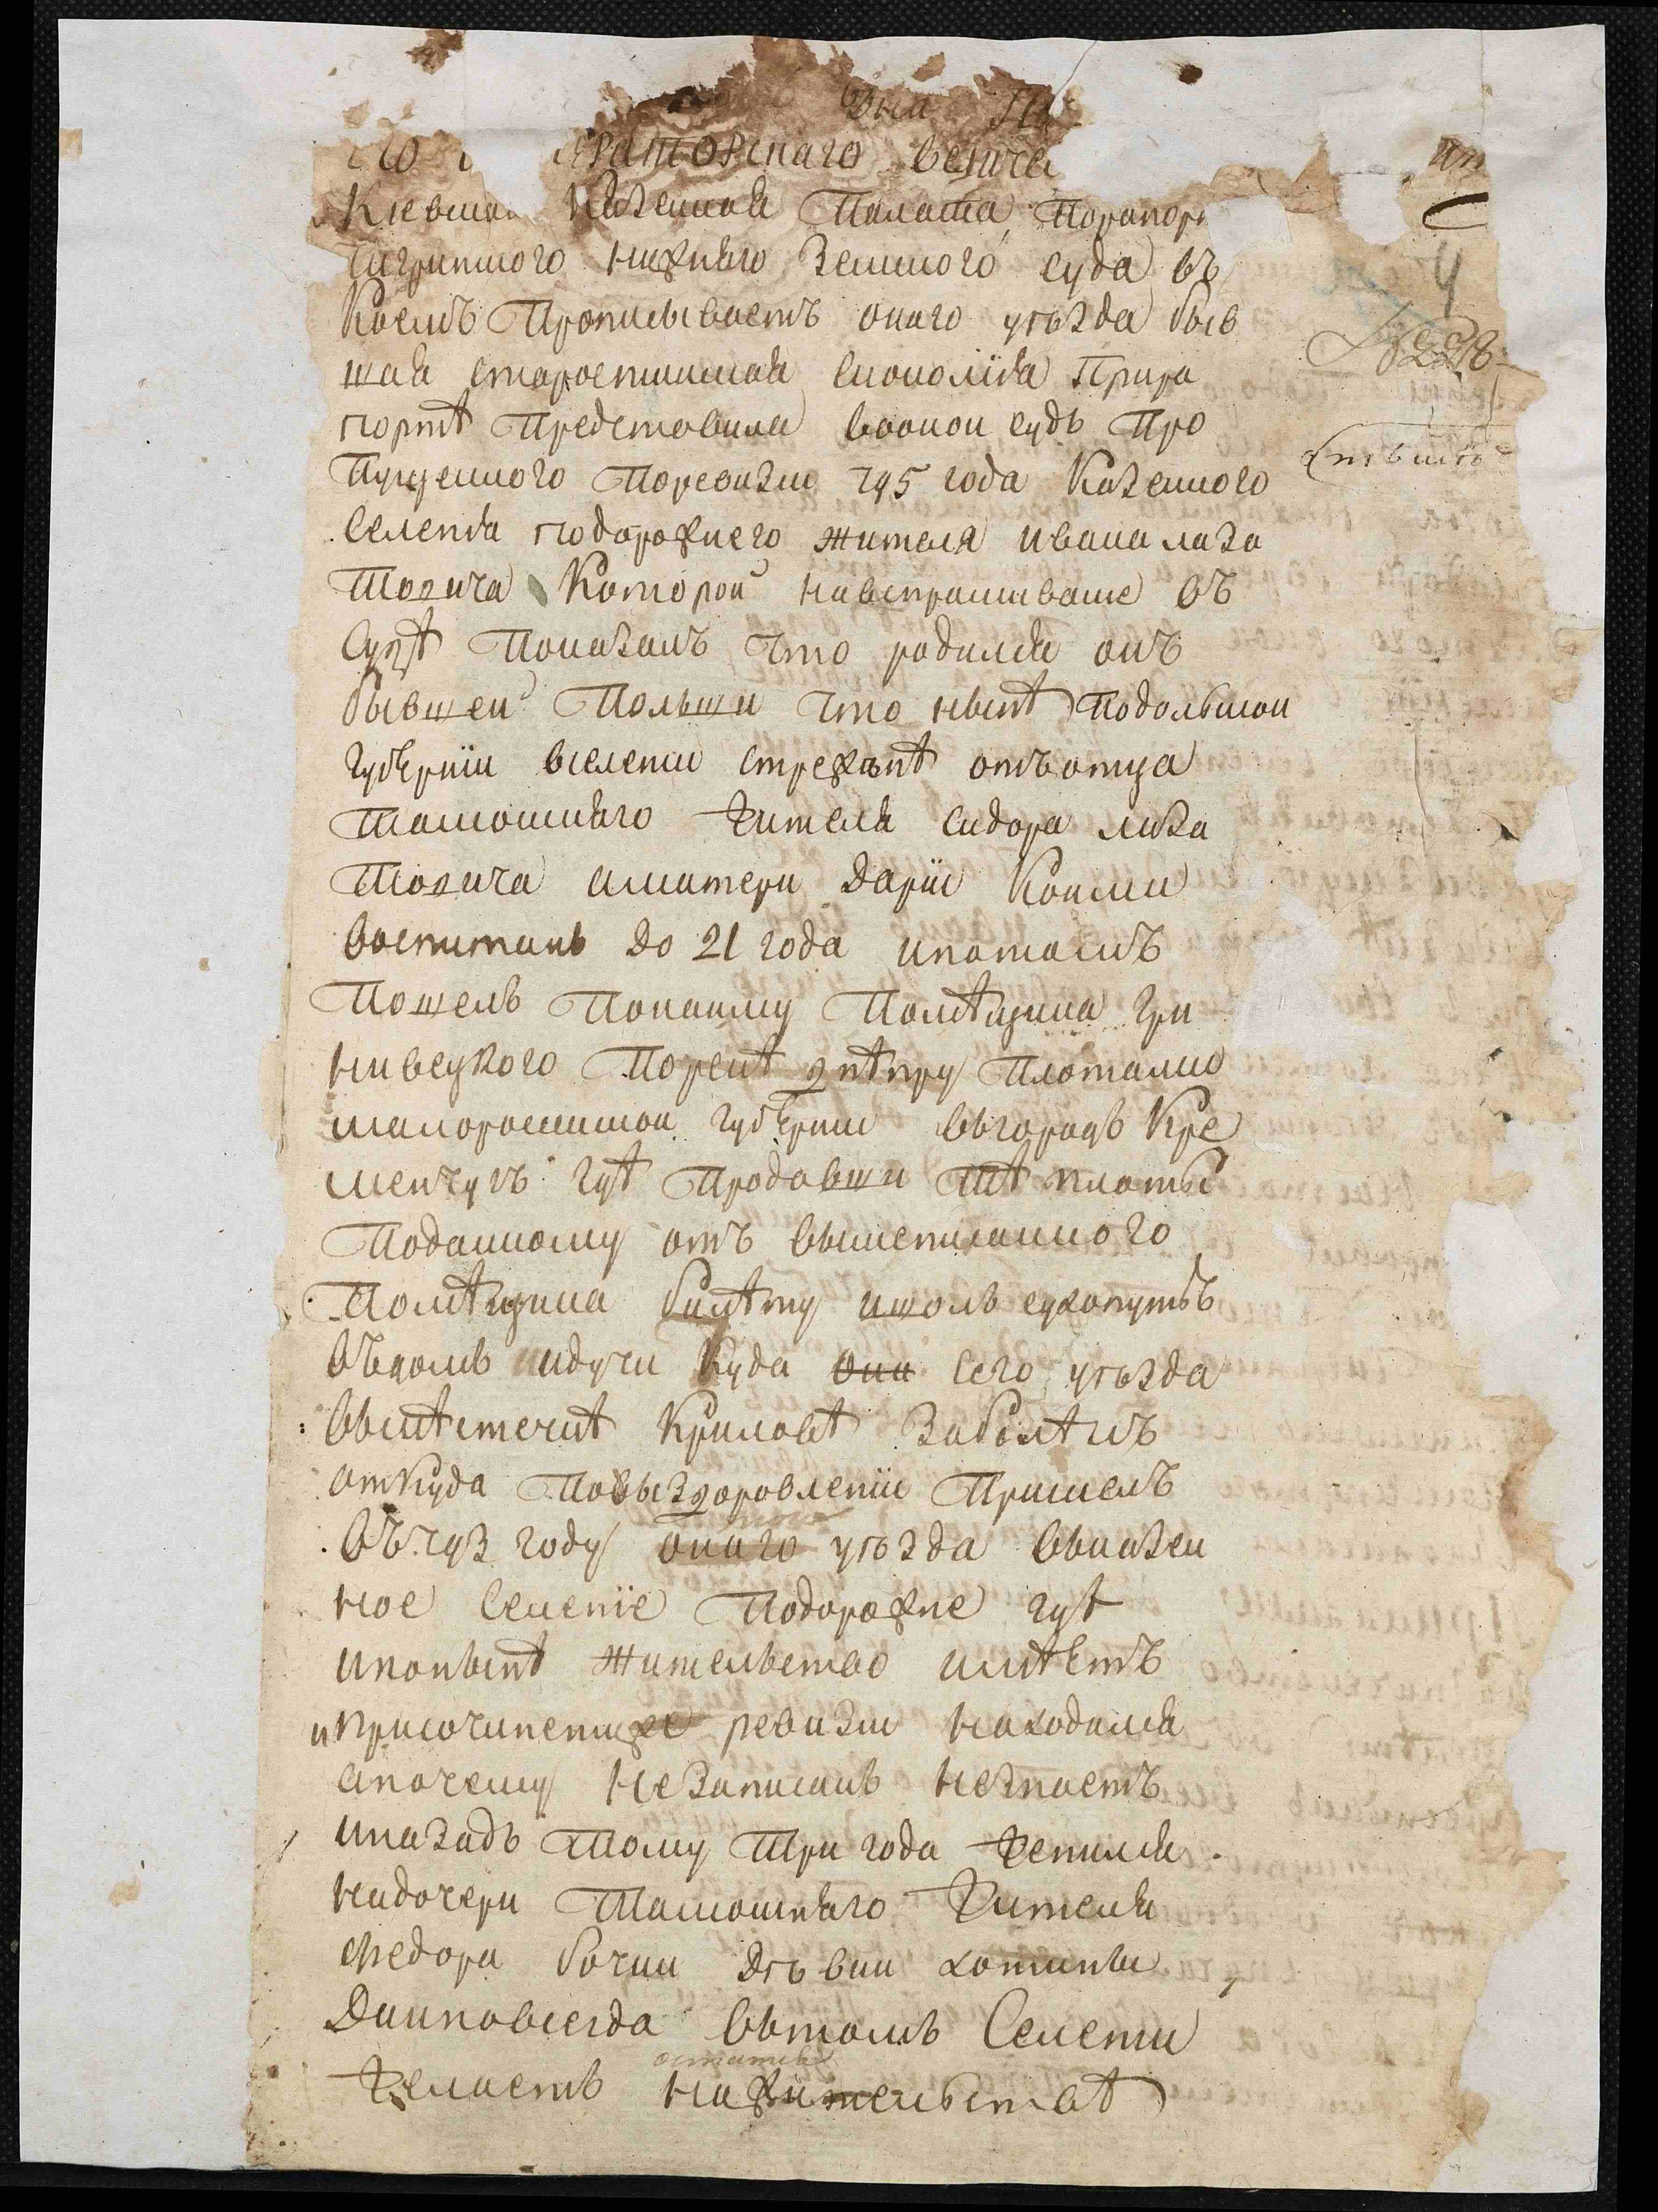 ЕГО ИМПЕРАТОРСКАГО ВЕЛИЧЕ
Киевская Казенная Палата, Порапор
чигринского нижняго Земского суда въ
Коемъ Прописываетъ онаго уѣзда быв
шая старостинская економіия Прира
портѣ Представила воонои судъ Про
Пущенного Поревизіи 795 года Казенного
Селения подорожнего жителя ивана лаза
Торича Которои навспрашиване въ
Судѣ Показалъ что родился онъ
бывшеи Польши что нынѣ Подольскои
губерніи вселении стрежнѣ отъотца
Тамошняго жителя сидора лаза
Торича иматери Дарiи Коими
воспитанъ до 21 года ипотомъ
Пошелъ Понаиму Помѣщика гри
нивецкого Порекѣ днѣпру Плотамы
малоросийскои губернiи въгородъ Кре
менчукъ гдѣ Продавши Тѣ плоты
Поданному отъ вышеписанного
Помѣщика билѣту ишолъ сухопутъ
въдомъ идучи куда сего уѣзда
вмѣстечкѣ Криловѣ Заболѣлъ
откуда Повыздоровленiи Пришелъ
въ 793 году онаго уѣзда вказен
ное Селенiе Подорожне гдѣ
ипонынѣ жительство имѣетъ
иприсочинениже ревизiи находился
апочему неЗаписанъ неЗнаетъ
иназадъ Тому Три года женился
надочери Тамошняго жителя
федора бочки дѣвки хотины
Дминавсегда втомъ Селении
остатся
желаетъ нажительствѣ
№ 2218
4